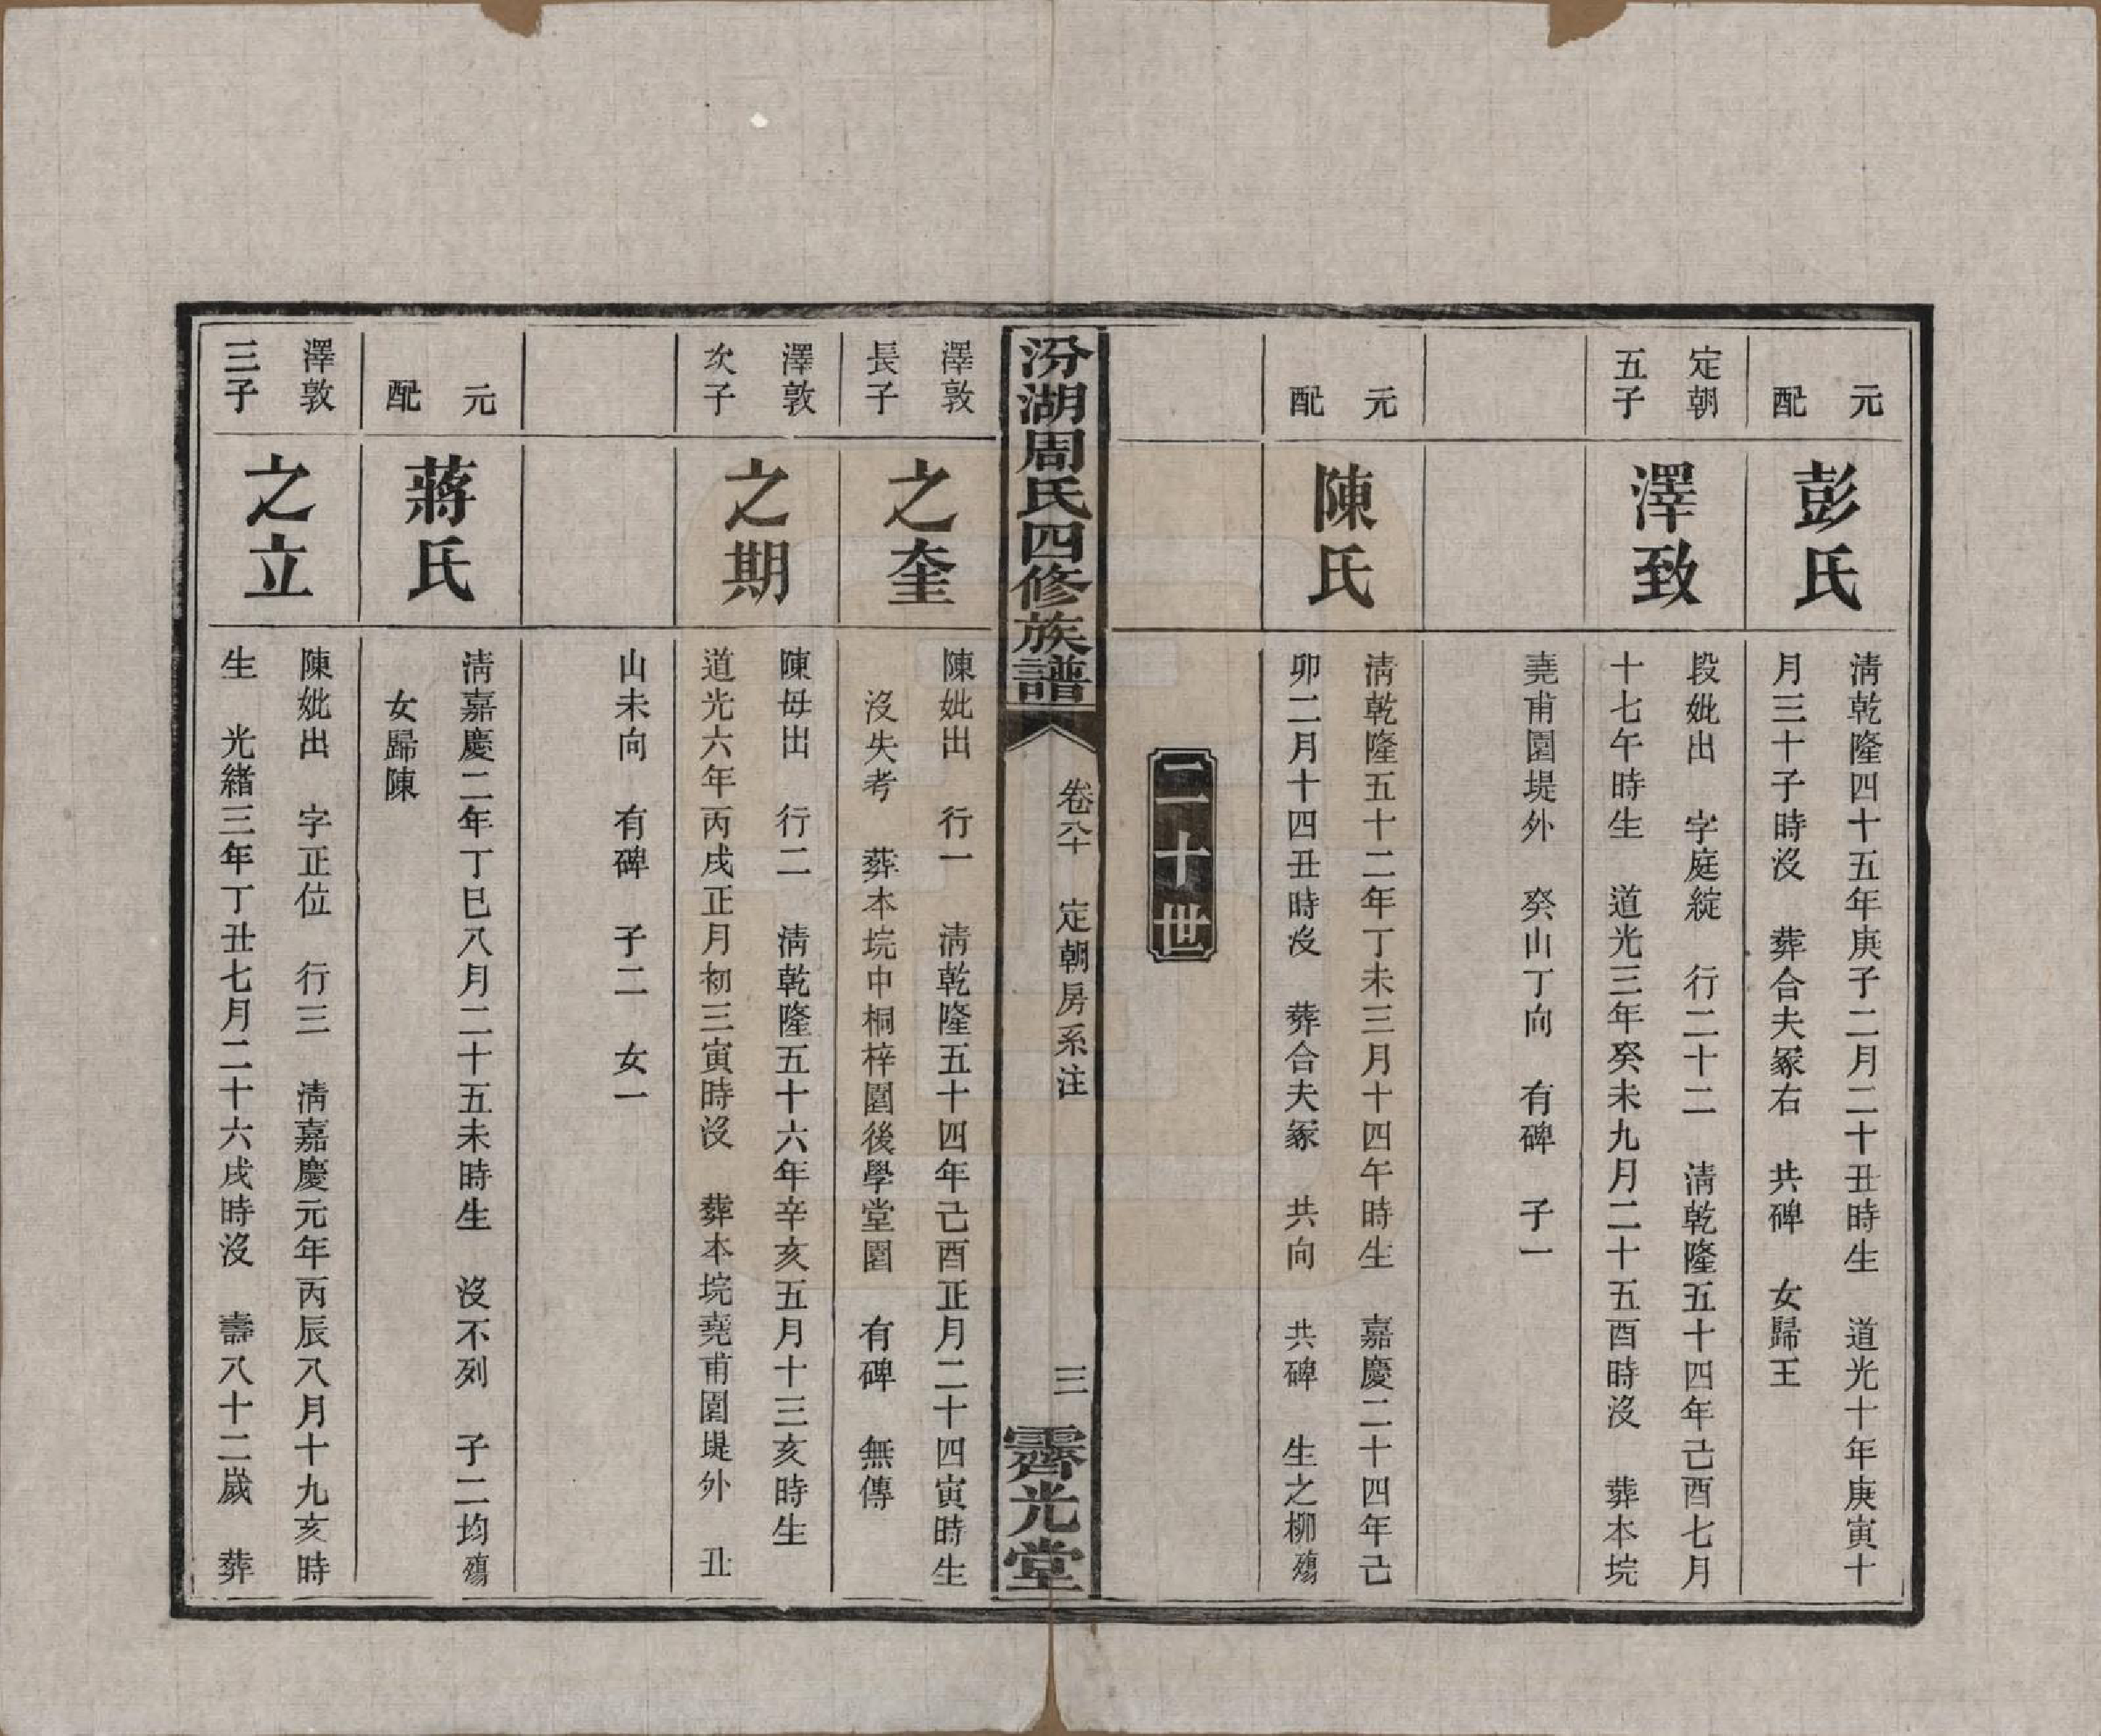 元
配
彭氏
清乾隆四十五年庚子二月二十丑時生 道光十年庚寅十
月三十子時沒 葬合夫冢右 共碑 女歸王
定朝
五子
澤致
段妣出 字庭綻 行二十二 清乾隆五十四年己酉七月
十七午時生 道光三年癸未九月二十五酉時沒 葬本垸
堯甫園堤外 癸山丁向 有碑 子一
元
配
陳氏
清乾隆五十二年丁未三月十四午時生 嘉慶二十四年己
卯二月十四丑時沒 葬合夫冢 共向 共碑 生之柳殤
二十世
汾湖周氏四修族譜
卷六十 定朝房系注
三
霽光堂
澤敦
長子
之奎
陳妣出 行一 清乾隆五十四年己酉正月二十四寅時生
沒失考 葬本垸中桐梓園後學堂園 有碑 無傳
澤敦
次子
之期
陳母出 行二 清乾隆五十六年辛亥五月十三亥時生
道光六年丙戌正月初三寅時沒 葬本垸堯甫園堤外 丑
山未向 有碑 子二 女一
元
配
蔣氏
清嘉慶二年丁巳八月二十五未時生 沒不列 子二均殤
女歸陳
澤敦
三子
之立
陳妣出 字正位 行三 清嘉慶元年丙辰八月十九亥時
生 光緒三年丁丑七月二十六戌時沒 壽八十二歲 葬